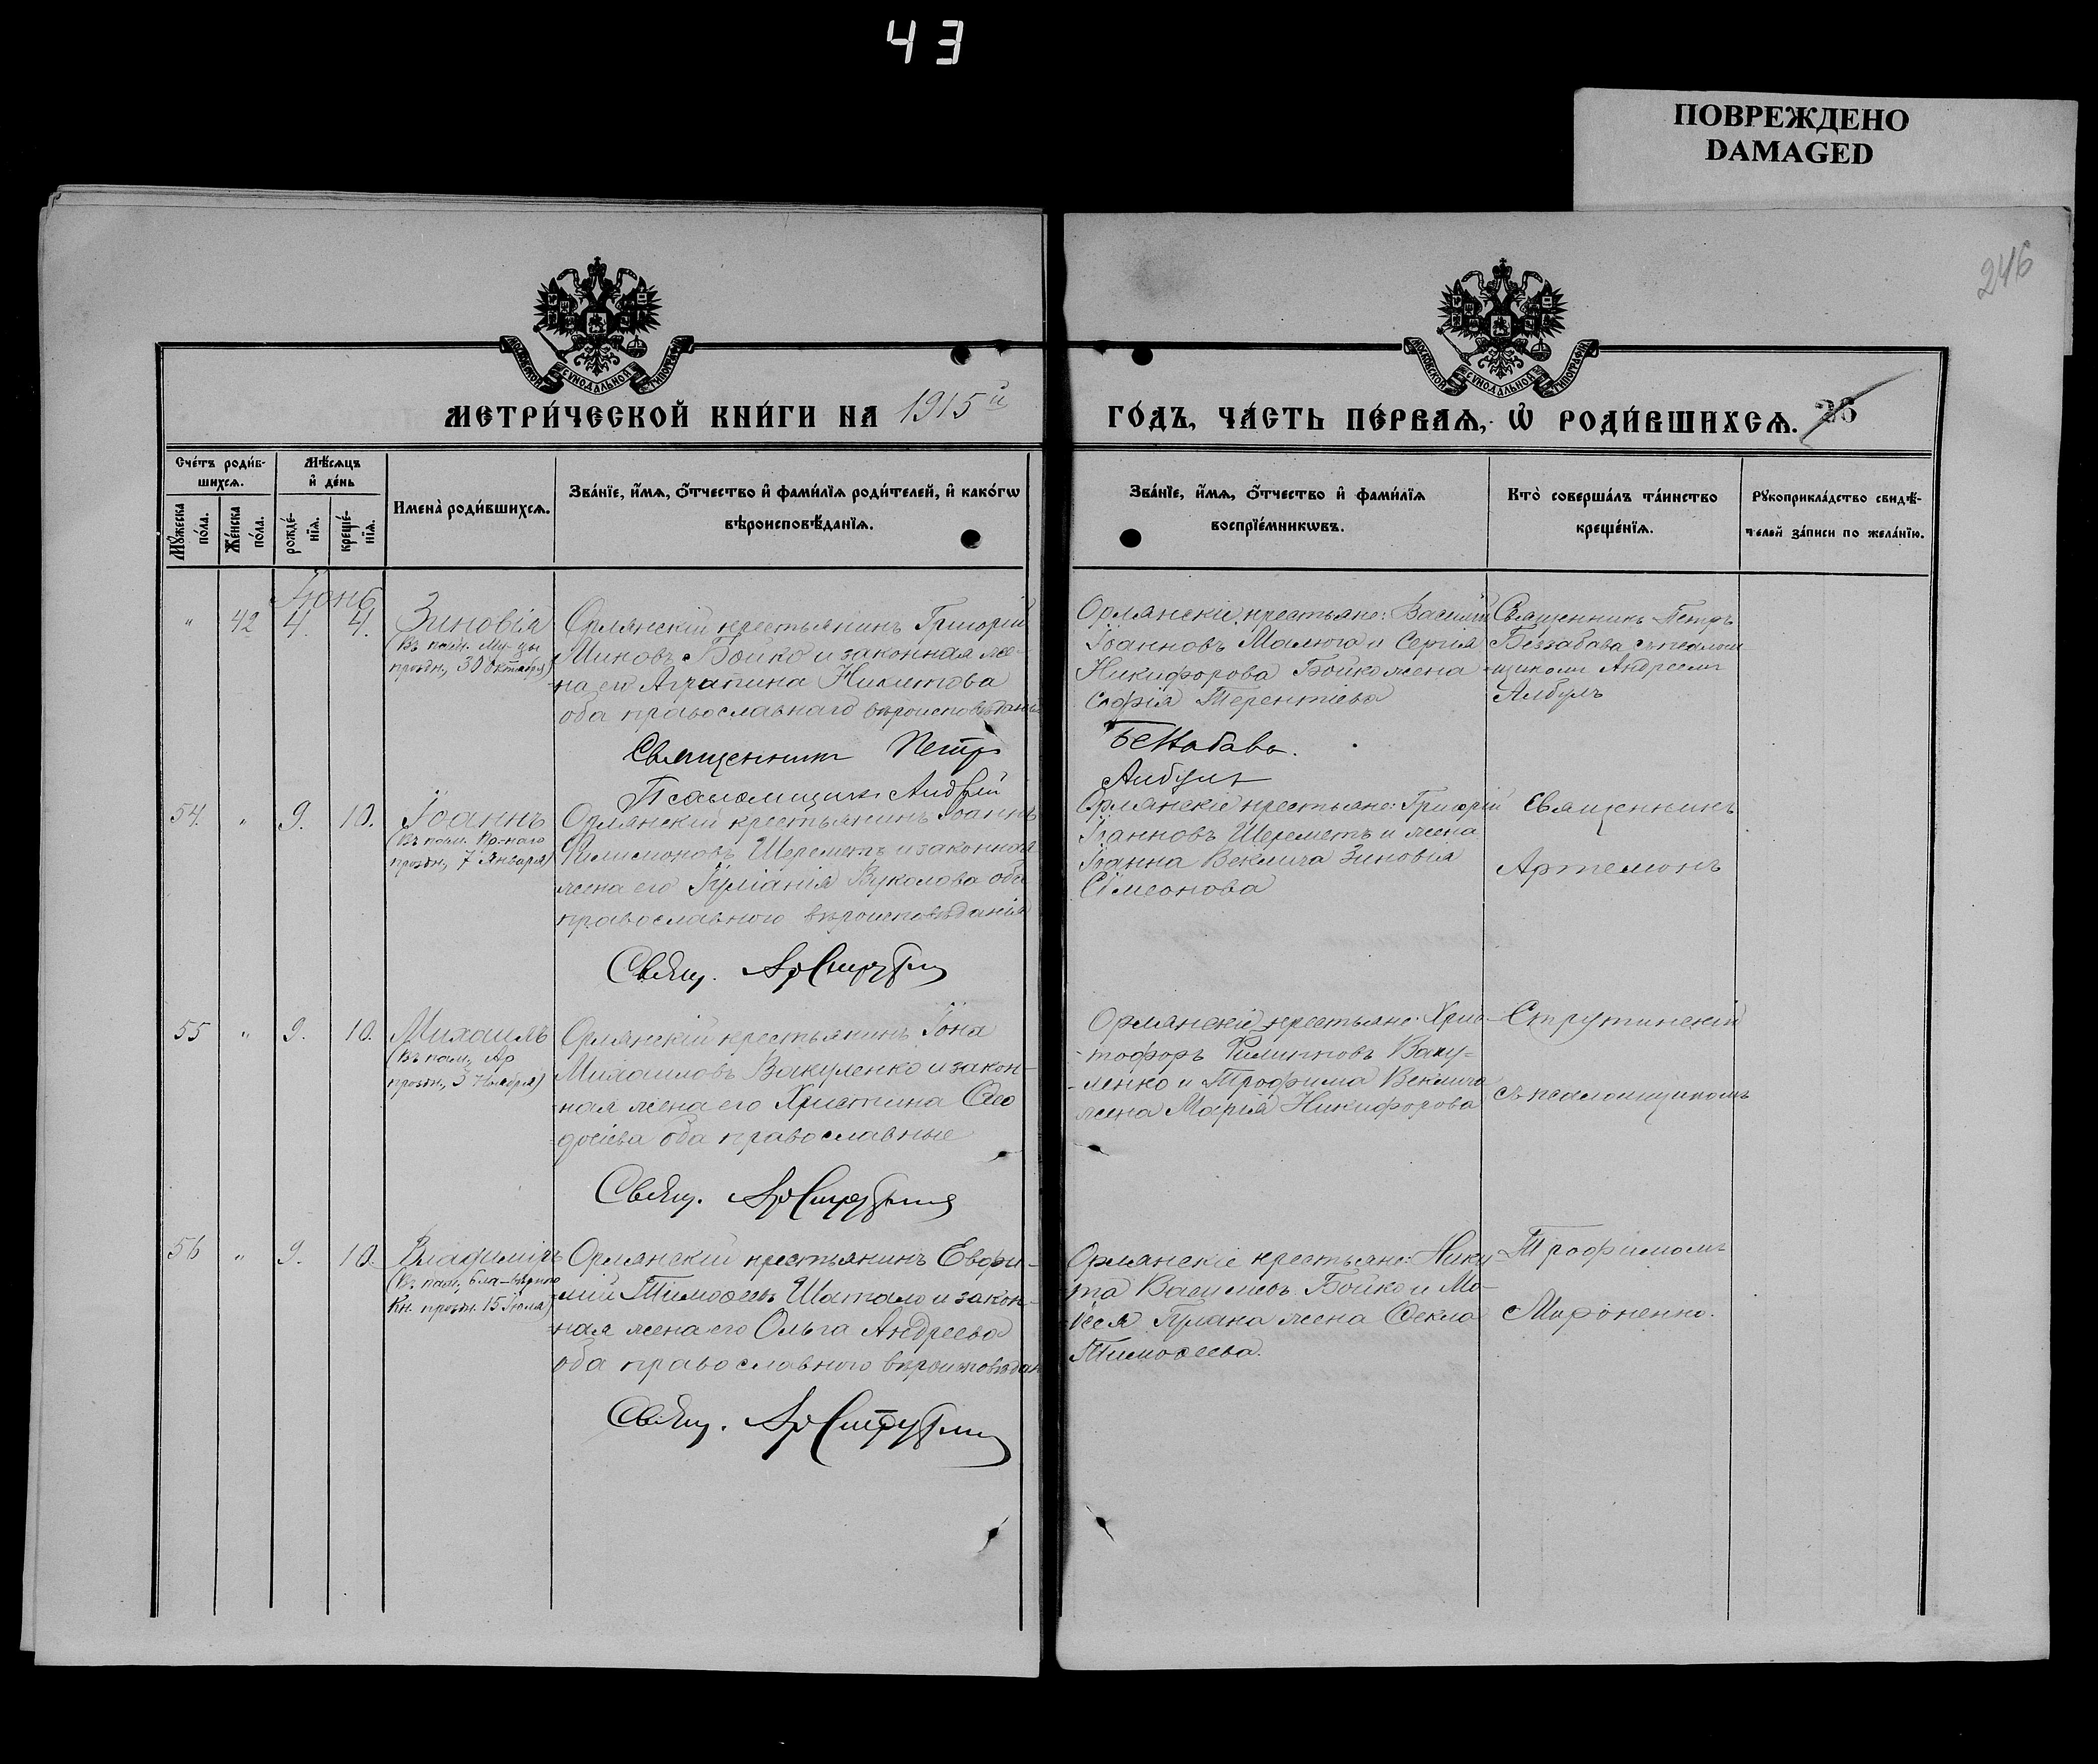 43
ПОВРЕЖДЕНО
DAMAGED
246
МОСКОВСКОЙ СУНОДАЛЬНОЙ ТИПОГРАФІИ
МОСКОВСКОЙ СУНОДАЛЬНОЙ ТИПОГРАФІИ
МЕТРИ́ЧЕСКОЙ КНИ́ГИ НА 1915й
ГО́ДЪ, ЧА́СТЬ ПЕ́РВАѦ, Ѡ҆ РОДИ́ВШИХСѦ. 26
Сче́тъ роди́в-
шихсѧ.
Мѣ́сѧцъ
и҆ де́нь
Мꙋ́жеска
по́ла.
Же́нска
по́ла.
рожде́-
нїѧ.
креще́-
нїѧ.
И҆мена̀ роди́вшихсѧ.
Зва́нїе, и҆́мѧ, ѻ҆́тчество и҆ фами́лїѧ роди́телей, и҆ како́гѡ
вѣроисповѣ́данїѧ.
Зва́нїе, и҆́мѧ, ѻ҆́тчество и҆ фами́лїѧ
воспрїе́мникѡвъ.
Кто̀ соверша́лъ та́инство
креще́нїѧ.
Рꙋкоприкла́дство свидѣ́-
телей за́писи по жела́нїю.
Іюнь
" 42 4. 4. Зиновія
(Въ пам. Му-цы
праздн., 30 Октября)
Орлянскій крестьянинъ Григорій
Миновъ Бойко и законная же-
на его Агрипина Никитова
оба православнаго вѣроисповѣданія
Священникъ Петръ
Псаломщикъ Андрей
Орлянскіе крестьяне: Василій
Іоанновъ Малюга и Сергія
Никифорова Бойко жена
Софія Терентіева
Беззабава.
Албулъ
Священникъ Петръ
Беззабава съ псалом-
щикомъ Андреемъ
Албулъ
54. " 9. 10. Іоаннъ
(Въ пам. Пр-наго
праздн., 7 Января)
Орлянскій крестьянинъ Іоаннъ
Филимоновъ Шереметъ и законная
жена его Іуліанія Вуколова оба
православного вѣроисповѣданія
Свящ. Ар Струтин
Орлянскіе крестьяне: Григорій
Іоанновъ Шереметъ и жена
Іоанна Веклича Зиновія
Сімеонова
Священникъ
Артемонъ
55 " 9. 10. Михаилъ
(Въ пам. Ар
праздн., 8 Ноября)
Орлянскій крестьянинъ Іона
Михаиловъ Вакуленко и закон-
ная жена его Христина Ѳео
досіева оба православные
Свящ. Ар Струтин
Орлянскіе крестьяне: Хрис-
тофоръ Филипповъ Ваку=
ленко и Трофима Веклича
жена Марія Никифорова
Струтинскій
съ псаломщикомъ
56 " 9. 10. Владиміръ
(Въ пам. бла-вѣрного
Кн. праздн. 15 Іюля)
Орлянскій крестьянинъ Евфи-
мій Тимоѳеевъ Шатало и закон-
ная жена его Ольга Андреева
оба православного вѣроисповѣдан
Свящ. Ар Струтин
Орлянскіе крестьяне: Ники-
та Васильевъ Бойко и Мо-
исея Гулака жена Ѳекла
Тимоѳеева.
Трофимомъ
Мироненко.